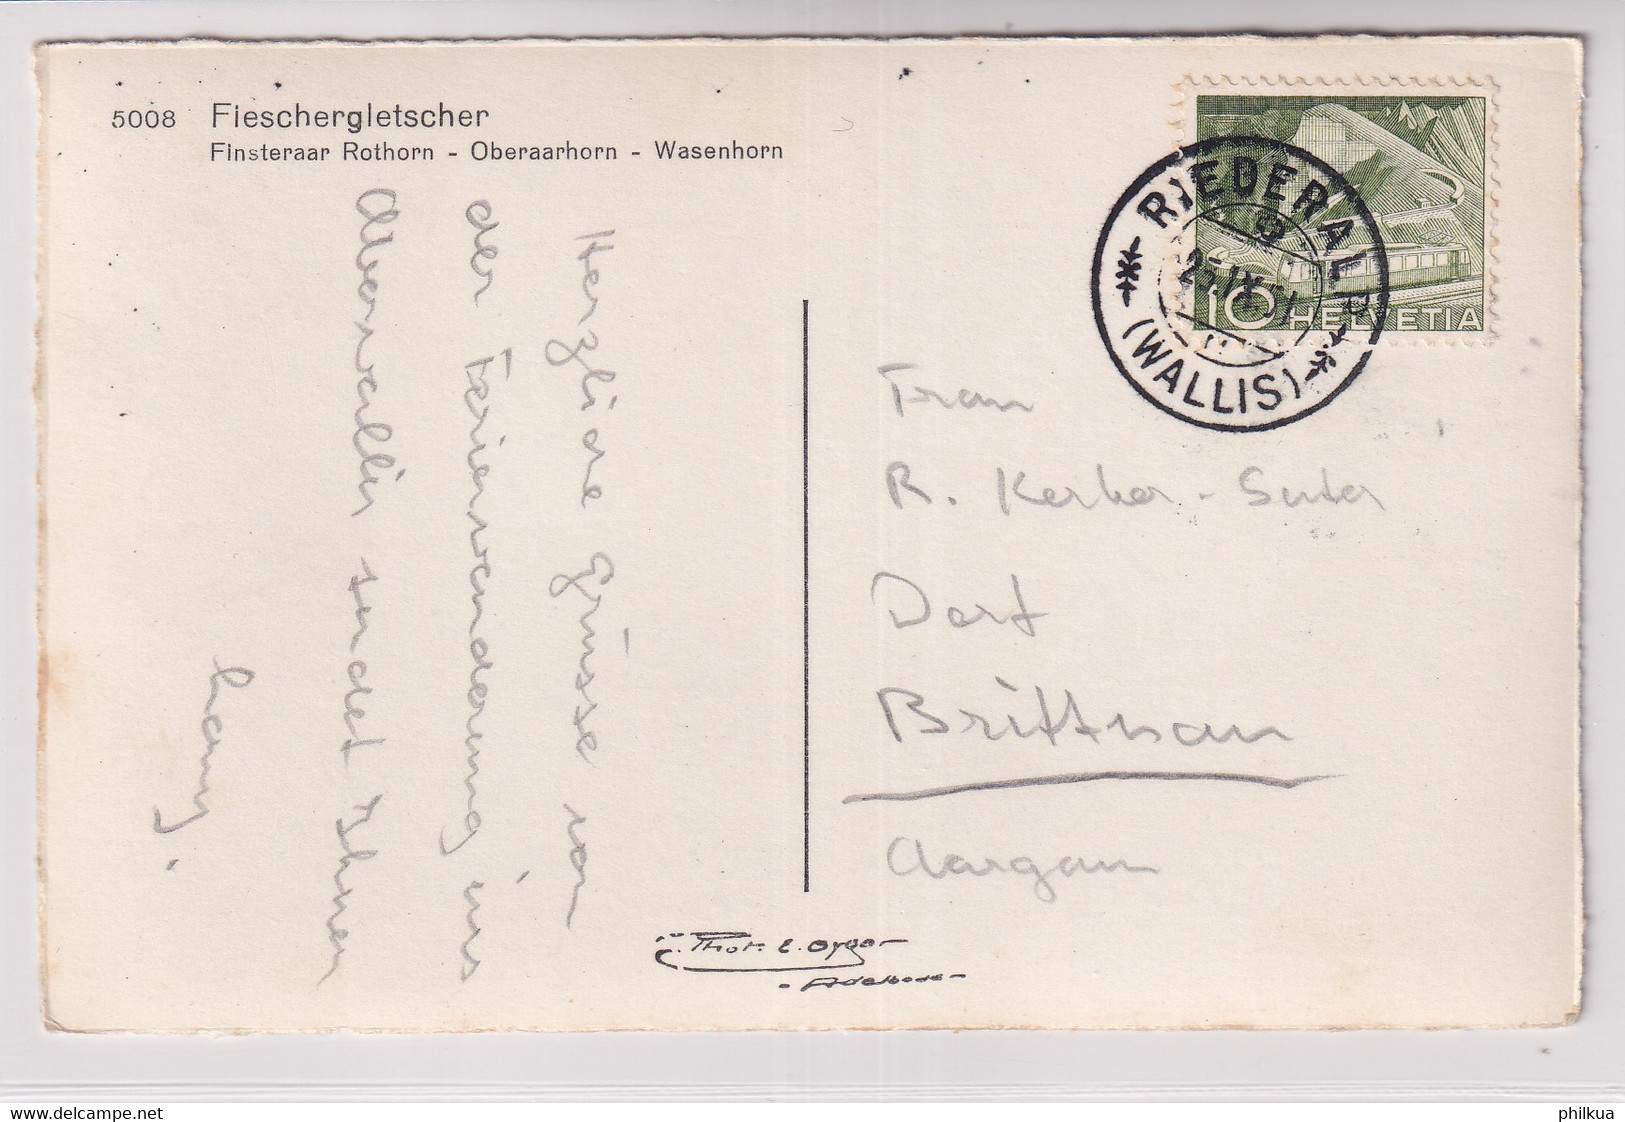 5008 Fieschergletscher
Finsteraar Rothorn - Oberaarhorn - Wasenhorn
Herzliche Grüsse von
der Ferienwanderung ins
Oberwallis sendet Ihnen
10 HELVETIA
RIEDERALP
25.IX.51
(WALLIS)
Frau
R. Kerber-Suter
Dorf
Brittnau
Aargau
Phot. E. Gyger
- Adelboden -
www.delcampe.net
philkua